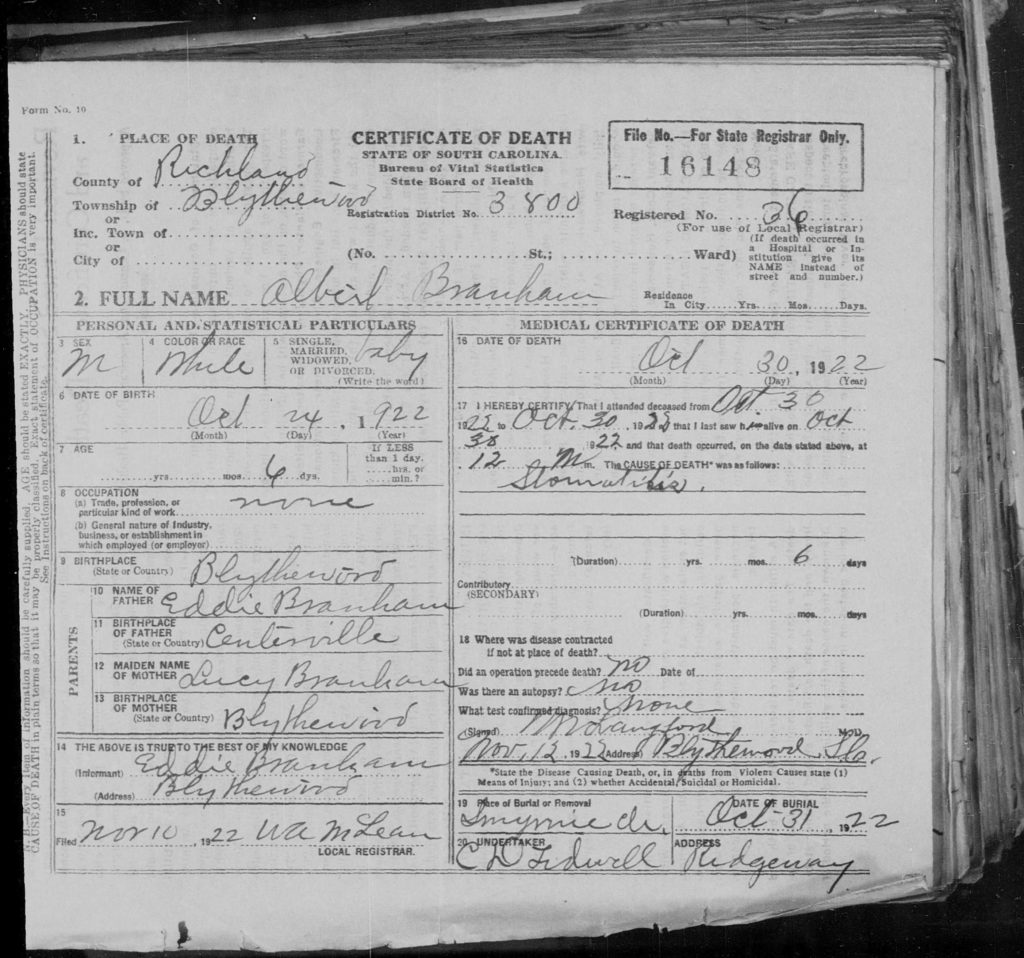 Form No. 10
1. PLACE OF DEATH
County of Richland
Township of Blythewood
or
Inc. Town of
or
City of
CERTIFICATE OF DEATH
STATE OF SOUTH CAROLINA.
Bureau of Vital Statistics
State Board of Health
Registration District No. 3800
(No. St.; Ward)
File No.—For State Registrar Only.
16148
Registered No. 36
(For use of Local Registrar)
(If death occurred in
a Hospital or In-
stitution give its
NAME instead of
street and number.)
2. FULL NAME Albert Branham
Residence
In City Yrs. Mos. Days.
PERSONAL AND STATISTICAL PARTICULARS
3 SEX
M
4 COLOR OR RACE
White
5 SINGLE,
MARRIED,
WIDOWED,
OR DIVORCED.
(Write the word)
baby
6 DATE OF BIRTH
Oct 24, 1922
(Month) (Day) (Year)
7 AGE
yrs. mos. 6 dys.
If LESS
than 1 day.
hrs. or
min.?
8 OCCUPATION
(a) Trade, profession, or
particular kind of work none
(b) General nature of Industry,
business, or establishment in
which employed (or employer)
9 BIRTHPLACE
(State or Country) Blythewood
PARENTS
10 NAME OF
FATHER Eddie Branham
11 BIRTHPLACE
OF FATHER
(State or Country) Centerville
12 MAIDEN NAME
OF MOTHER Lucy Branham
13 BIRTHPLACE
OF MOTHER
(State or Country) Blythewood
14 THE ABOVE IS TRUE TO THE BEST OF MY KNOWLEDGE
(Informant) Eddie Branham
(Address) Blythewood
15
Filed Nov 10, 1922 W A McLean
LOCAL REGISTRAR.
MEDICAL CERTIFICATE OF DEATH
16 DATE OF DEATH
Oct 30, 1922
(Month) (Day) (Year)
17 I HEREBY CERTIFY, That I attended deceased from Oct. 30
1922 to Oct. 30 1922 that I last saw him alive on Oct
30 1922 and that death occurred, on the date stated above, at
12 M m. The CAUSE OF DEATH* was as follows:
Stomatitis.
(Duration) yrs. mos. 6 days
Contributory
(SECONDARY)
(Duration) yrs. mos. days
18 Where was disease contracted
if not at place of death?
Did an operation precede death? no Date of
Was there an autopsy? no
What test confirmed diagnosis? None
(Signed) Langford M.D.
Nov. 12, 1922 (Address) Blythewood S.C.
*State the Disease Causing Death, or, in deaths from Violent Causes state (1)
Means of Injury; and (2) whether Accidental, Suicidal or Homicidal.
19 Place of Burial or Removal
DATE OF BURIAL
Oct-31, 1922
20 UNDERTAKER
C D Tidwell
ADDRESS
Ridgeway
N. B.—Every item of information should be carefully supplied. AGE should be stated EXACTLY. PHYSICIANS should state
CAUSE OF DEATH in plain terms so that it may be properly classified. Exact statement of OCCUPATION is very important.
See instructions on back of certificate.